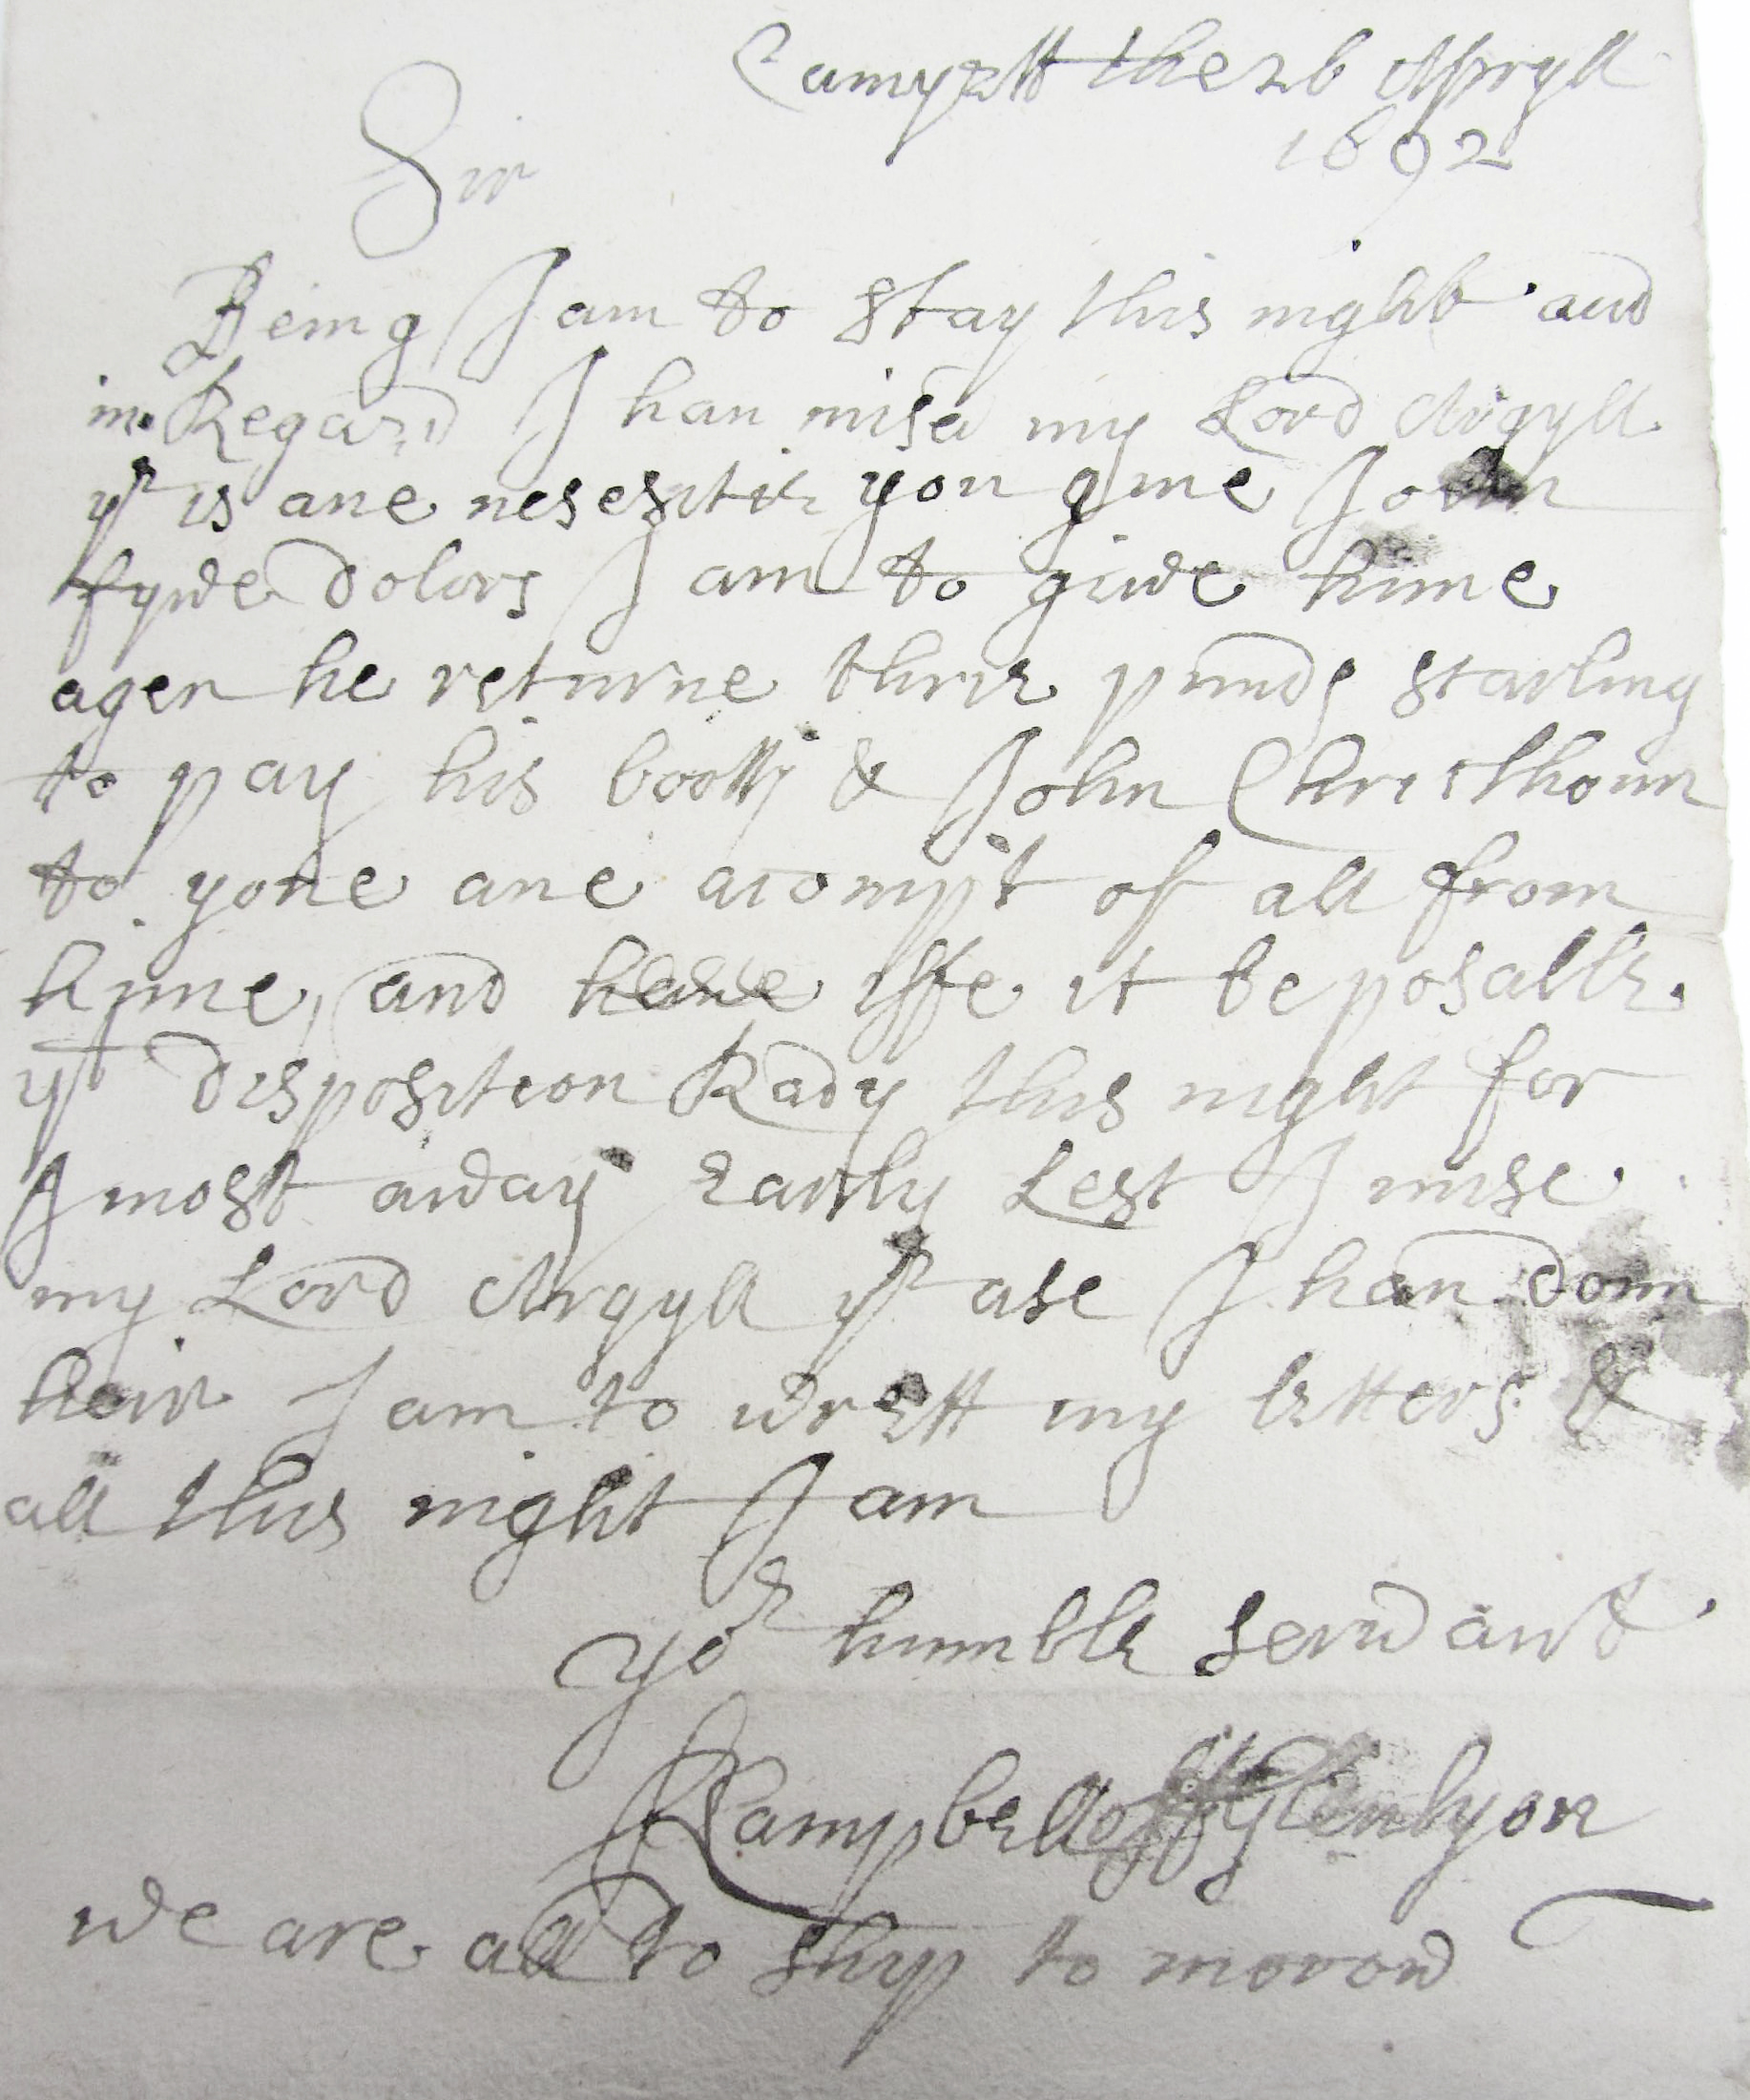 the 26 Apryll
1692
Sir
Being I am to stay this night and
in Regard I hau misd my Lord Argyll
yr is ane nesesitie you giue John
fywe dolors I am to giwe hime
agen he returne thrie punds starling
to pay his & John
to ane acompt of all from
hime, and iffe it be posable
yt disposition Rady this night for
I most away early Lest I mise
my Lord Argyll yr ase I hau doun
heir I am to wrett my letters &
all this night I am
yor humble servant
RCampbell off Glenlyon
we are all to ship to morow